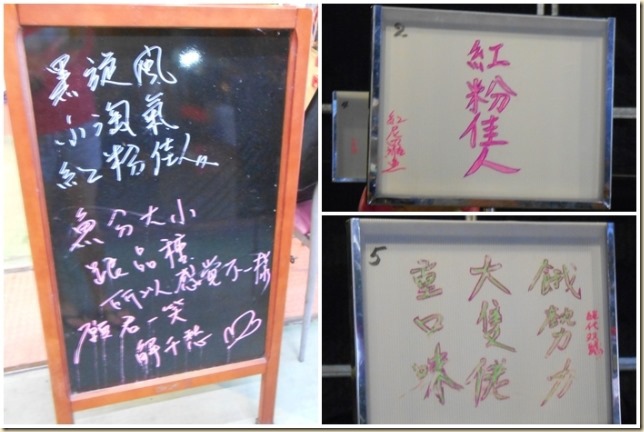 黑旋風
小淘氣
紅粉佳人
魚分大小
跟品種
所以感覺不一樣
願君一笑
解千愁
2
紅粉佳人
5
餓勢力
大隻佬
重口味